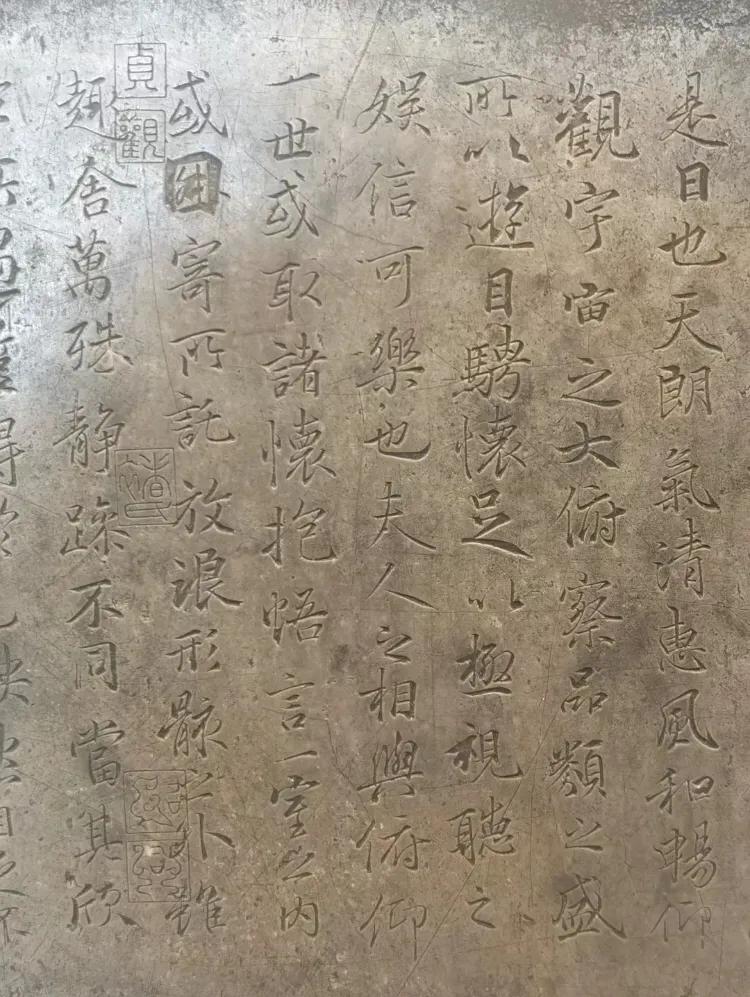 是日也天朗氣清惠風和暢仰
觀宇宙之大俯察品類之盛
所以遊目騁懷足以極視聽之
娛信可樂也夫人之相與俯仰
一世或取諸懷抱悟言一室之内
或因寄所託放浪形骸之外雖
趣舍萬殊静躁不同當其欣
貞觀